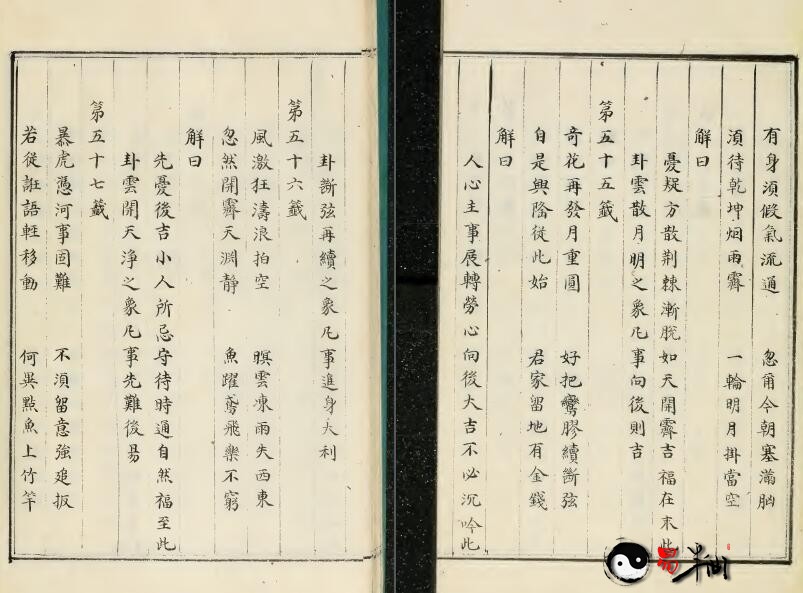 有身須假氣流通　忽爾今朝塞滿胸
須待乾坤烟雨霽　一輪明月掛當空
解曰
憂疑方散荆棘漸脫如天開霽吉福在末此
卦雲散月明之象凡事向後則吉
第五十五籤
奇花再發月重圓　好把鸞膠續斷弦
自是興隆從此始　君家留地有金錢
解曰
人心主事展轉勞心向後大吉不必沉吟此
卦斷弦再續之象凡事進身大利
第五十六籤
風激狂濤浪拍空　暝雲凍雨失西東
忽然開霽天淵静　魚躍鳶飛樂不窮
解曰
先憂後吉小人所忌守待時通自然福至此
卦雲開天淨之象凡事先難後易
第五十七籤
暴虎憑河事固難　不須留意強追扳
若從誑語輕移動　何異點魚上竹竿
易